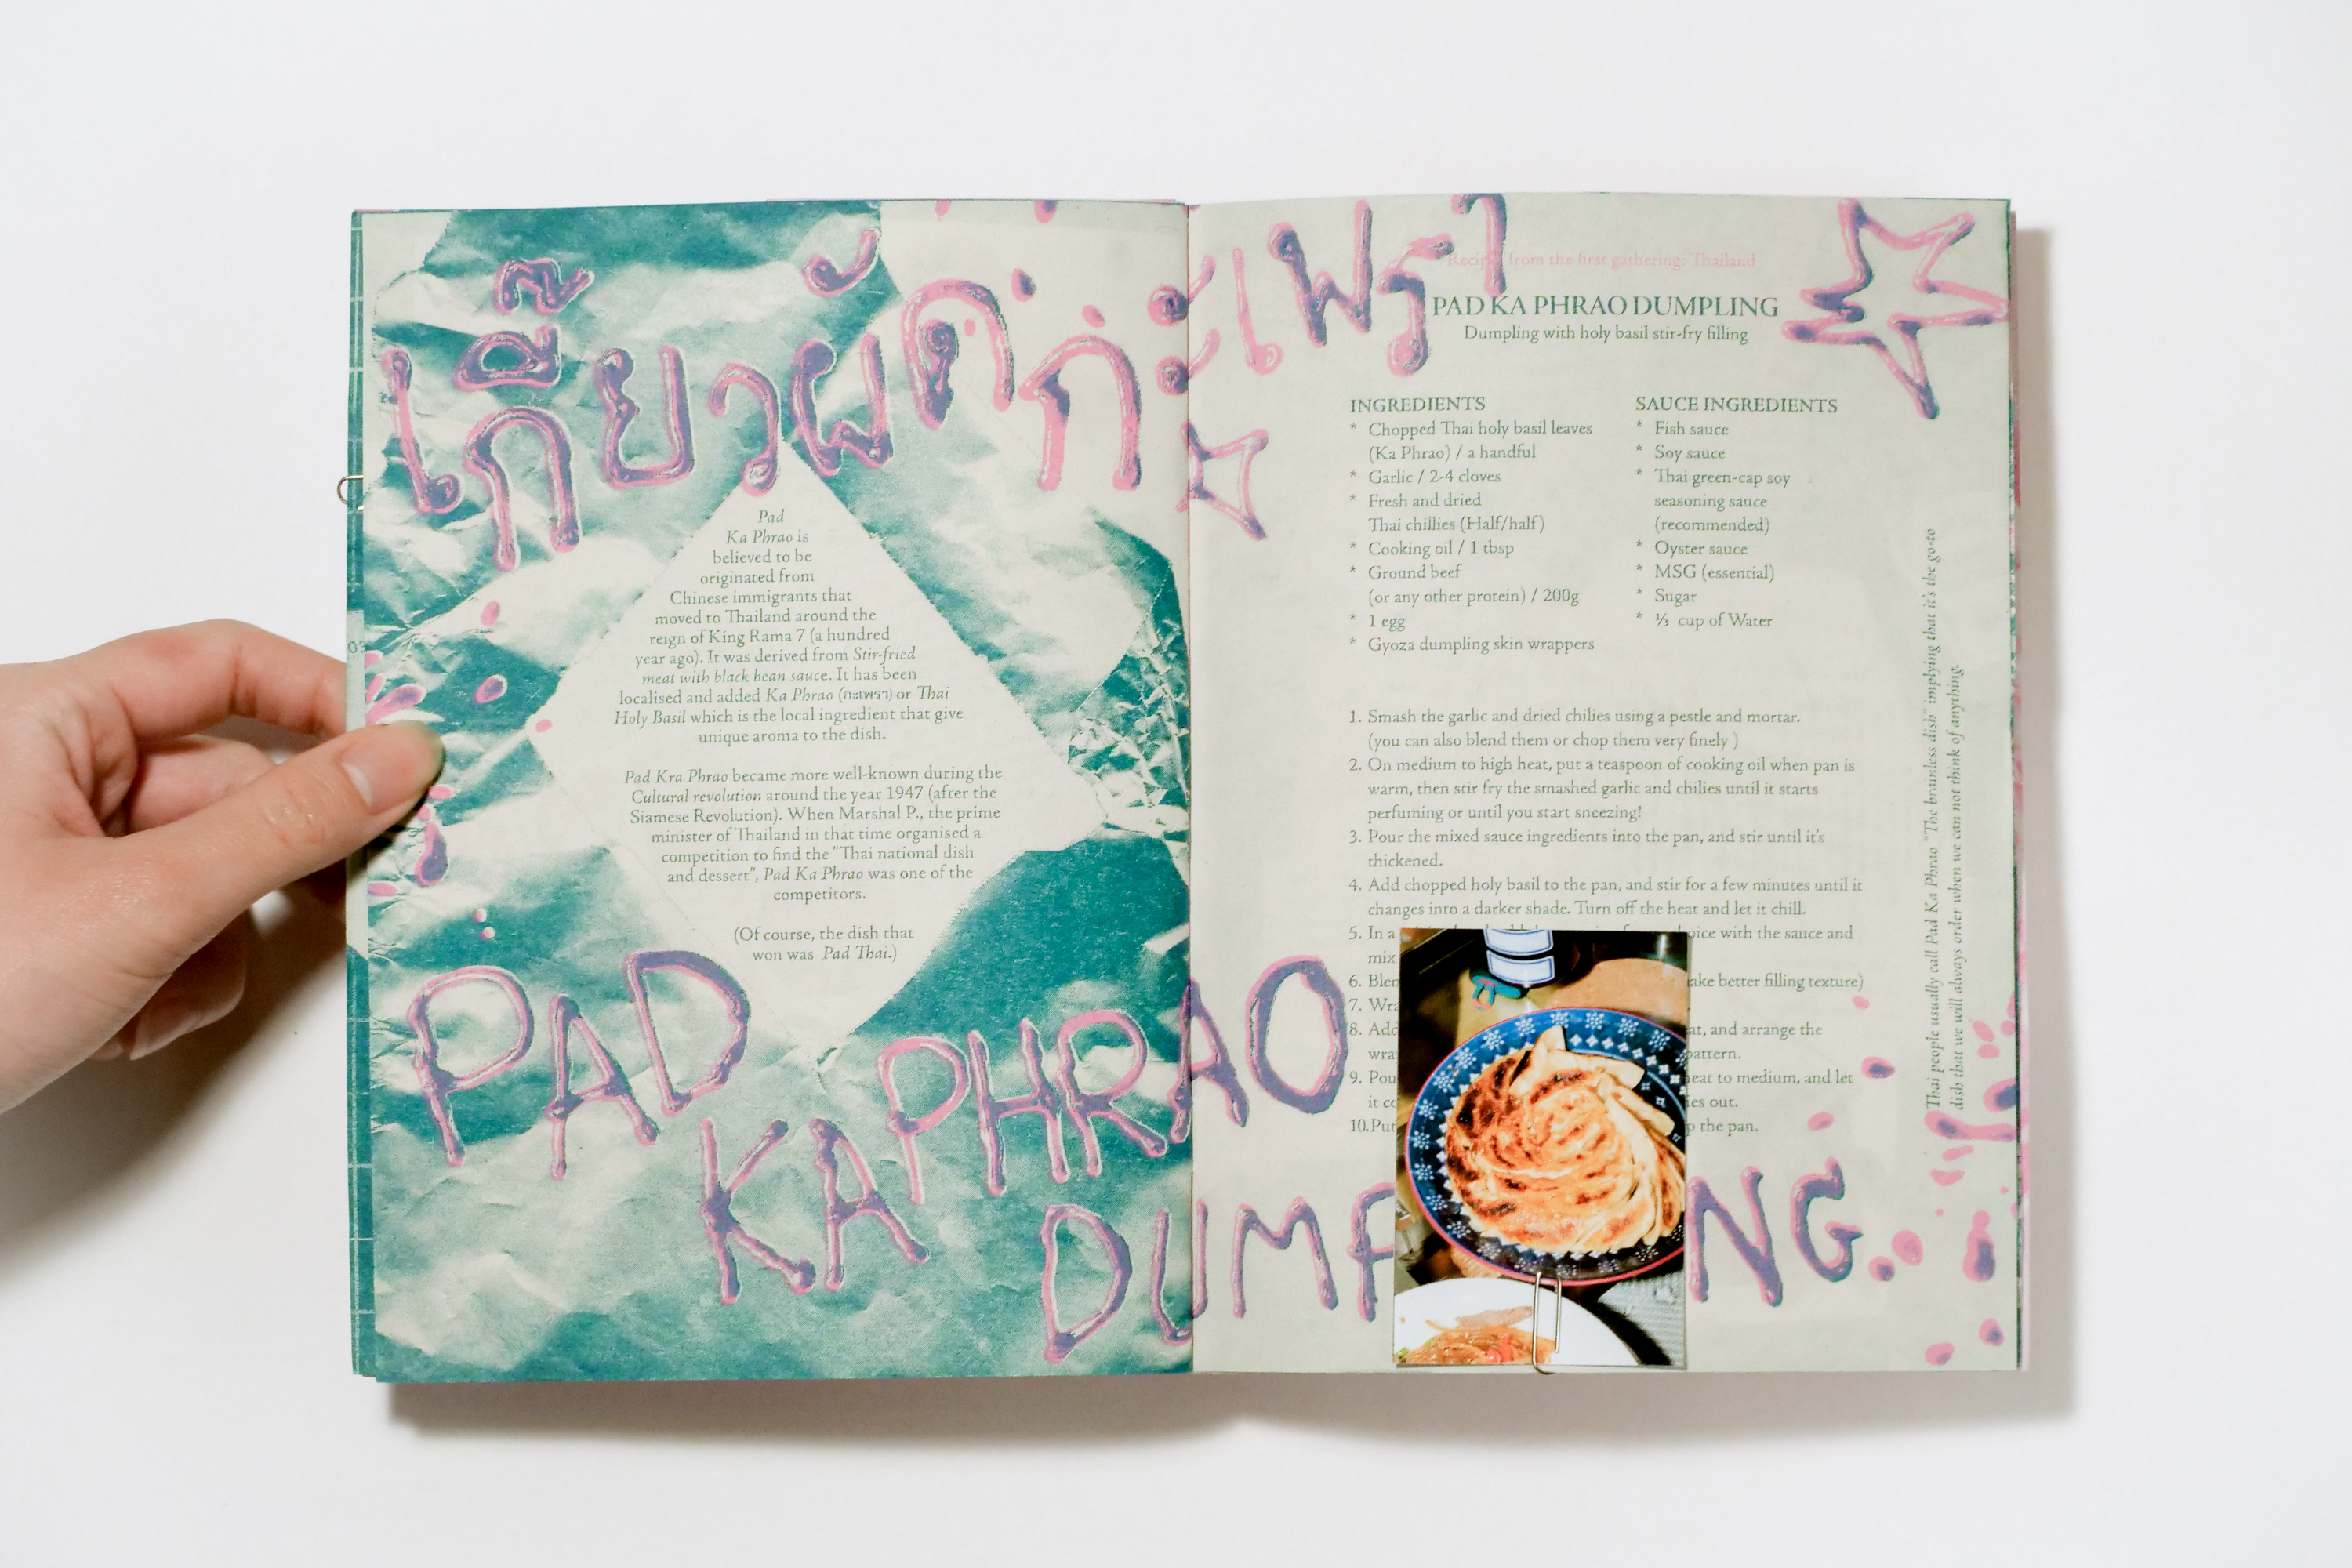 เกี๊ยวผัดกะเพรา
Pad
Ka Phrao is
believed to be
originated from
Chinese immigrants that
moved to Thailand around the
reign of King Rama 7 (a hundred
year ago). It was derived from Stir-fried
meat with black bean sauce. It has been
localised and added Ka Phrao (กะเพรา) or Thai
Holy Basil which is the local ingredient that give
unique aroma to the dish.
Pad Kra Phrao became more well-known during the
Cultural revolution around the year 1947 (after the
Siamese Revolution). When Marshal P., the prime
minister of Thailand in that time organised a
competition to find the "Thai national dish
and dessert", Pad Ka Phrao was one of the
competitors.
(Of course, the dish that
won was Pad Thai.)
PAD
KAPHRAO
DUMP NG.
03
from the first gathering: Thailand
PAD KA PHRAO DUMPLING
Dumpling with holy basil stir-fry filling
INGREDIENTS
* Chopped Thai holy basil leaves
(Ka Phrao) / a handful
* Garlic / 2-4 cloves
* Fresh and dried
Thai chillies (Half/half)
* Cooking oil / 1 tbsp
* Ground beef
(or any other protein) / 200g
* 1 egg
* Gyoza dumpling skin wrappers
SAUCE INGREDIENTS
* Fish sauce
* Soy sauce
* Thai green-cap soy
seasoning sauce
(recommended)
* Oyster sauce
* MSG (essential)
* Sugar
* ⅓ cup of Water
1. Smash the garlic and dried chilies using a pestle and mortar.
(you can also blend them or chop them very finely )
2. On medium to high heat, put a teaspoon of cooking oil when pan is
warm, then stir fry the smashed garlic and chilies until it starts
perfuming or until you start sneezing!
3. Pour the mixed sauce ingredients into the pan, and stir until it's
thickened.
4. Add chopped holy basil to the pan, and stir for a few minutes until it
changes into a darker shade. Turn off the heat and let it chill.
5. In a with the sauce and
mix
6. better filling texture)
7.
8. Add and arrange the
pattern.
9. to medium, and let
it out.
10.Put the pan.
Thai people usually call Pad Ka Phrao "The brainless dish" implying that it's the go-to
dish that we will always order when we can not think of anything.